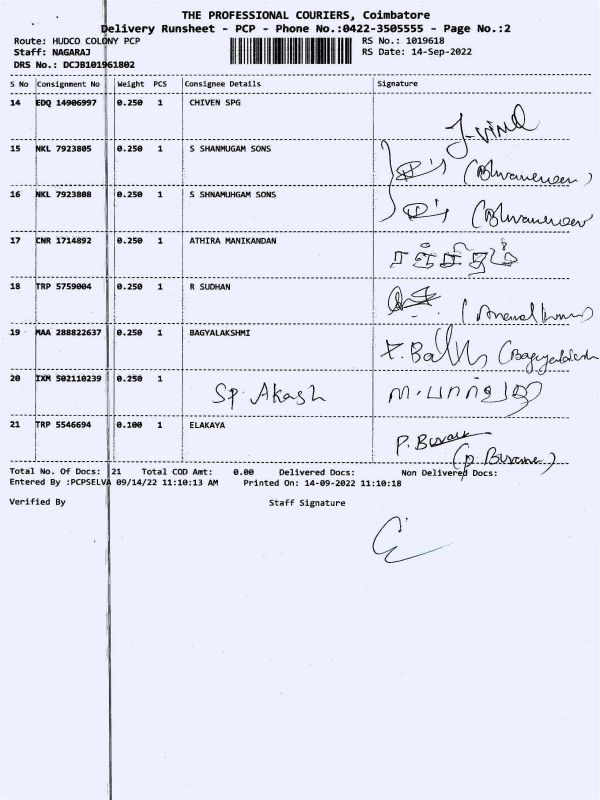 THE PROFESSIONAL COURIERS, Coimbatore
Delivery Runsheet - PCP - Phone No.:0422-3505555 - Page No.:2
Route: HUDCO COLONY PCP RS No.: 1019618
Staff: NAGARAJ RS Date: 14-Sep-2022
DRS No.: DCJB101961802
S No Consignment No Weight PCS Consignee Details Signature
14 EDQ 14906997 0.250 1 CHIVEN SPG
15 NKL 7923805 0.250 1 S SHANMUGAM SONS
16 NKL 7923808 0.250 1 S SHNAMUHGAM SONS
17 CNR 1714892 0.250 1 ATHIRA MANIKANDAN
18 TRP 5759004 0.250 1 R SUDHAN
19 MAA 288822637 0.250 1 BAGYALAKSHMI
20 IXM 502110239 0.250 1 SP. Akash
21 TRP 5546694 0.100 1 ELAKAYA
Total No. Of Docs: 21 Total COD Amt: 0.00 Delivered Docs: Non Delivered Docs:
Entered By :PCPSELVA 09/14/22 11:10:13 AM Printed On: 14-09-2022 11:10:18
Verified By Staff Signature